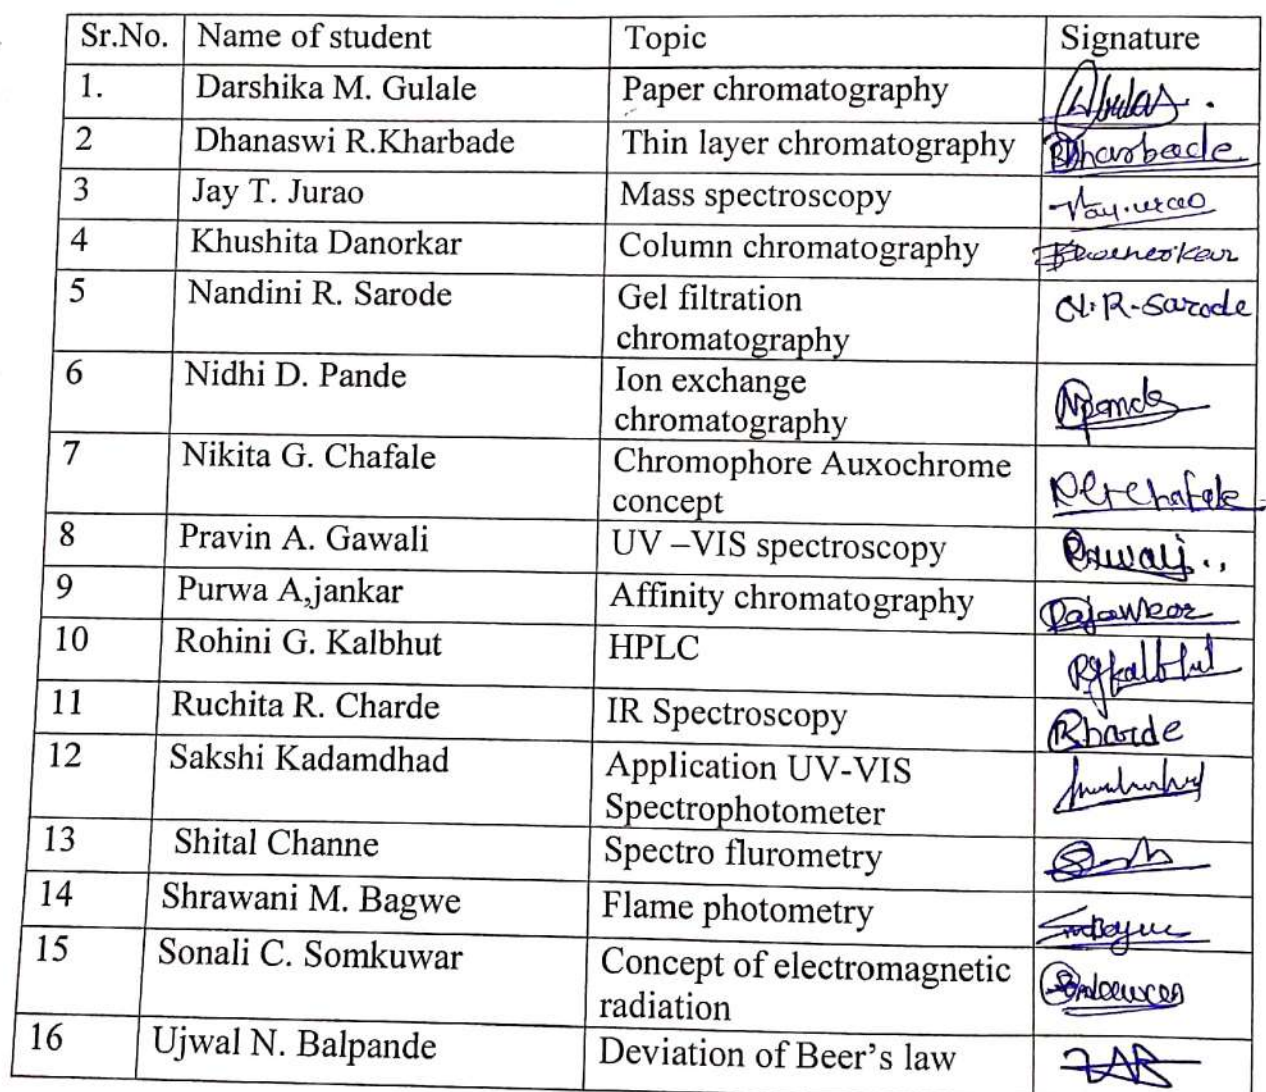 Sr.No. Name of student Topic Signature
1. Darshika M. Gulale Paper chromatography
2 Dhanaswi R.Kharbade Thin layer chromatography Rkharbade
3 Jay T. Jurao Mass spectroscopy
4 Khushita Danorkar Column chromatography
5 Nandini R. Sarode Gel filtration N.R-Sarode
chromatography
6 Nidhi D. Pande Ion exchange Npande
chromatography
7 Nikita G. Chafale Chromophore Auxochrome
concept
8 Pravin A. Gawali UV –VIS spectroscopy
9 Purwa A,jankar Affinity chromatography
10 Rohini G. Kalbhut HPLC RGkalbhut
11 Ruchita R. Charde IR Spectroscopy Rharde
12 Sakshi Kadamdhad Application UV-VIS
Spectrophotometer
13 Shital Channe Spectro flurometry
14 Shrawani M. Bagwe Flame photometry
15 Sonali C. Somkuwar Concept of electromagnetic
radiation
16 Ujwal N. Balpande Deviation of Beer's law